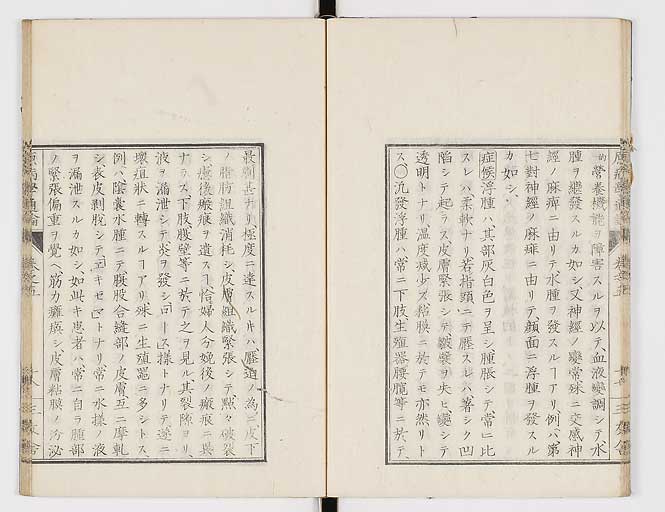 的營養機能ヲ障害スルヲ以テ、血液變調シテ水
腫ヲ繼發スルカ如シ、又神經ノ變常殊ニ交感神
經ノ麻痺ニ由リテ水腫ヲ發スルヿアリ、例ハ第
七對神經ノ麻痺ニ由リテ、顔面ニ浮腫ヲ發スル
カ如シ、
症候浮腫ハ其部灰白色ヲ呈シ腫脹シテ常ニ比
スレハ柔軟ナリ若指頭ニテ壓スレハ著シク凹
陷シテ起ラス、皮膚緊張シテ皺襞ヲ失ヒ變シテ
透明トナリ、温度減少ス粘膜ニ於テモ亦然リト
ス、〇汎發浮腫ハ常ニ下肢生殖器腰腹等ニ於テ、
最劇甚ナリ、極度ニ達スルキハ壓迫ノ為ニ皮下
ノ脂肪組織消耗シ、皮膚組織緊張シテ點々破裂
シ、癒後瘢痕ヲ遺スヿ恰婦人分娩後ノ瘢痕ニ異
ナラス、下肢腹壁等ニ於テ之ヲ見ル其裂隙ヨリ、
液ヲ漏泄シテ炎ヲ發シ
壞疽狀ニ轉スルヿアリ殊ニ生殖器ニ多シトス、
例ハ陰囊水腫ニテ、膁股合縫部ノ皮膚互ニ摩軋
シ、表皮剥脱シテトナリ常ニ水樣ノ液
ヲ漏泄スルカ如シ、如此キ患者ハ常ニ自ラ腫部
ノ緊張偏重ヲ覺ヘ筋力癱瘓シ皮膚粘膜ノ分泌
原病學通論
卷之五
三友舍